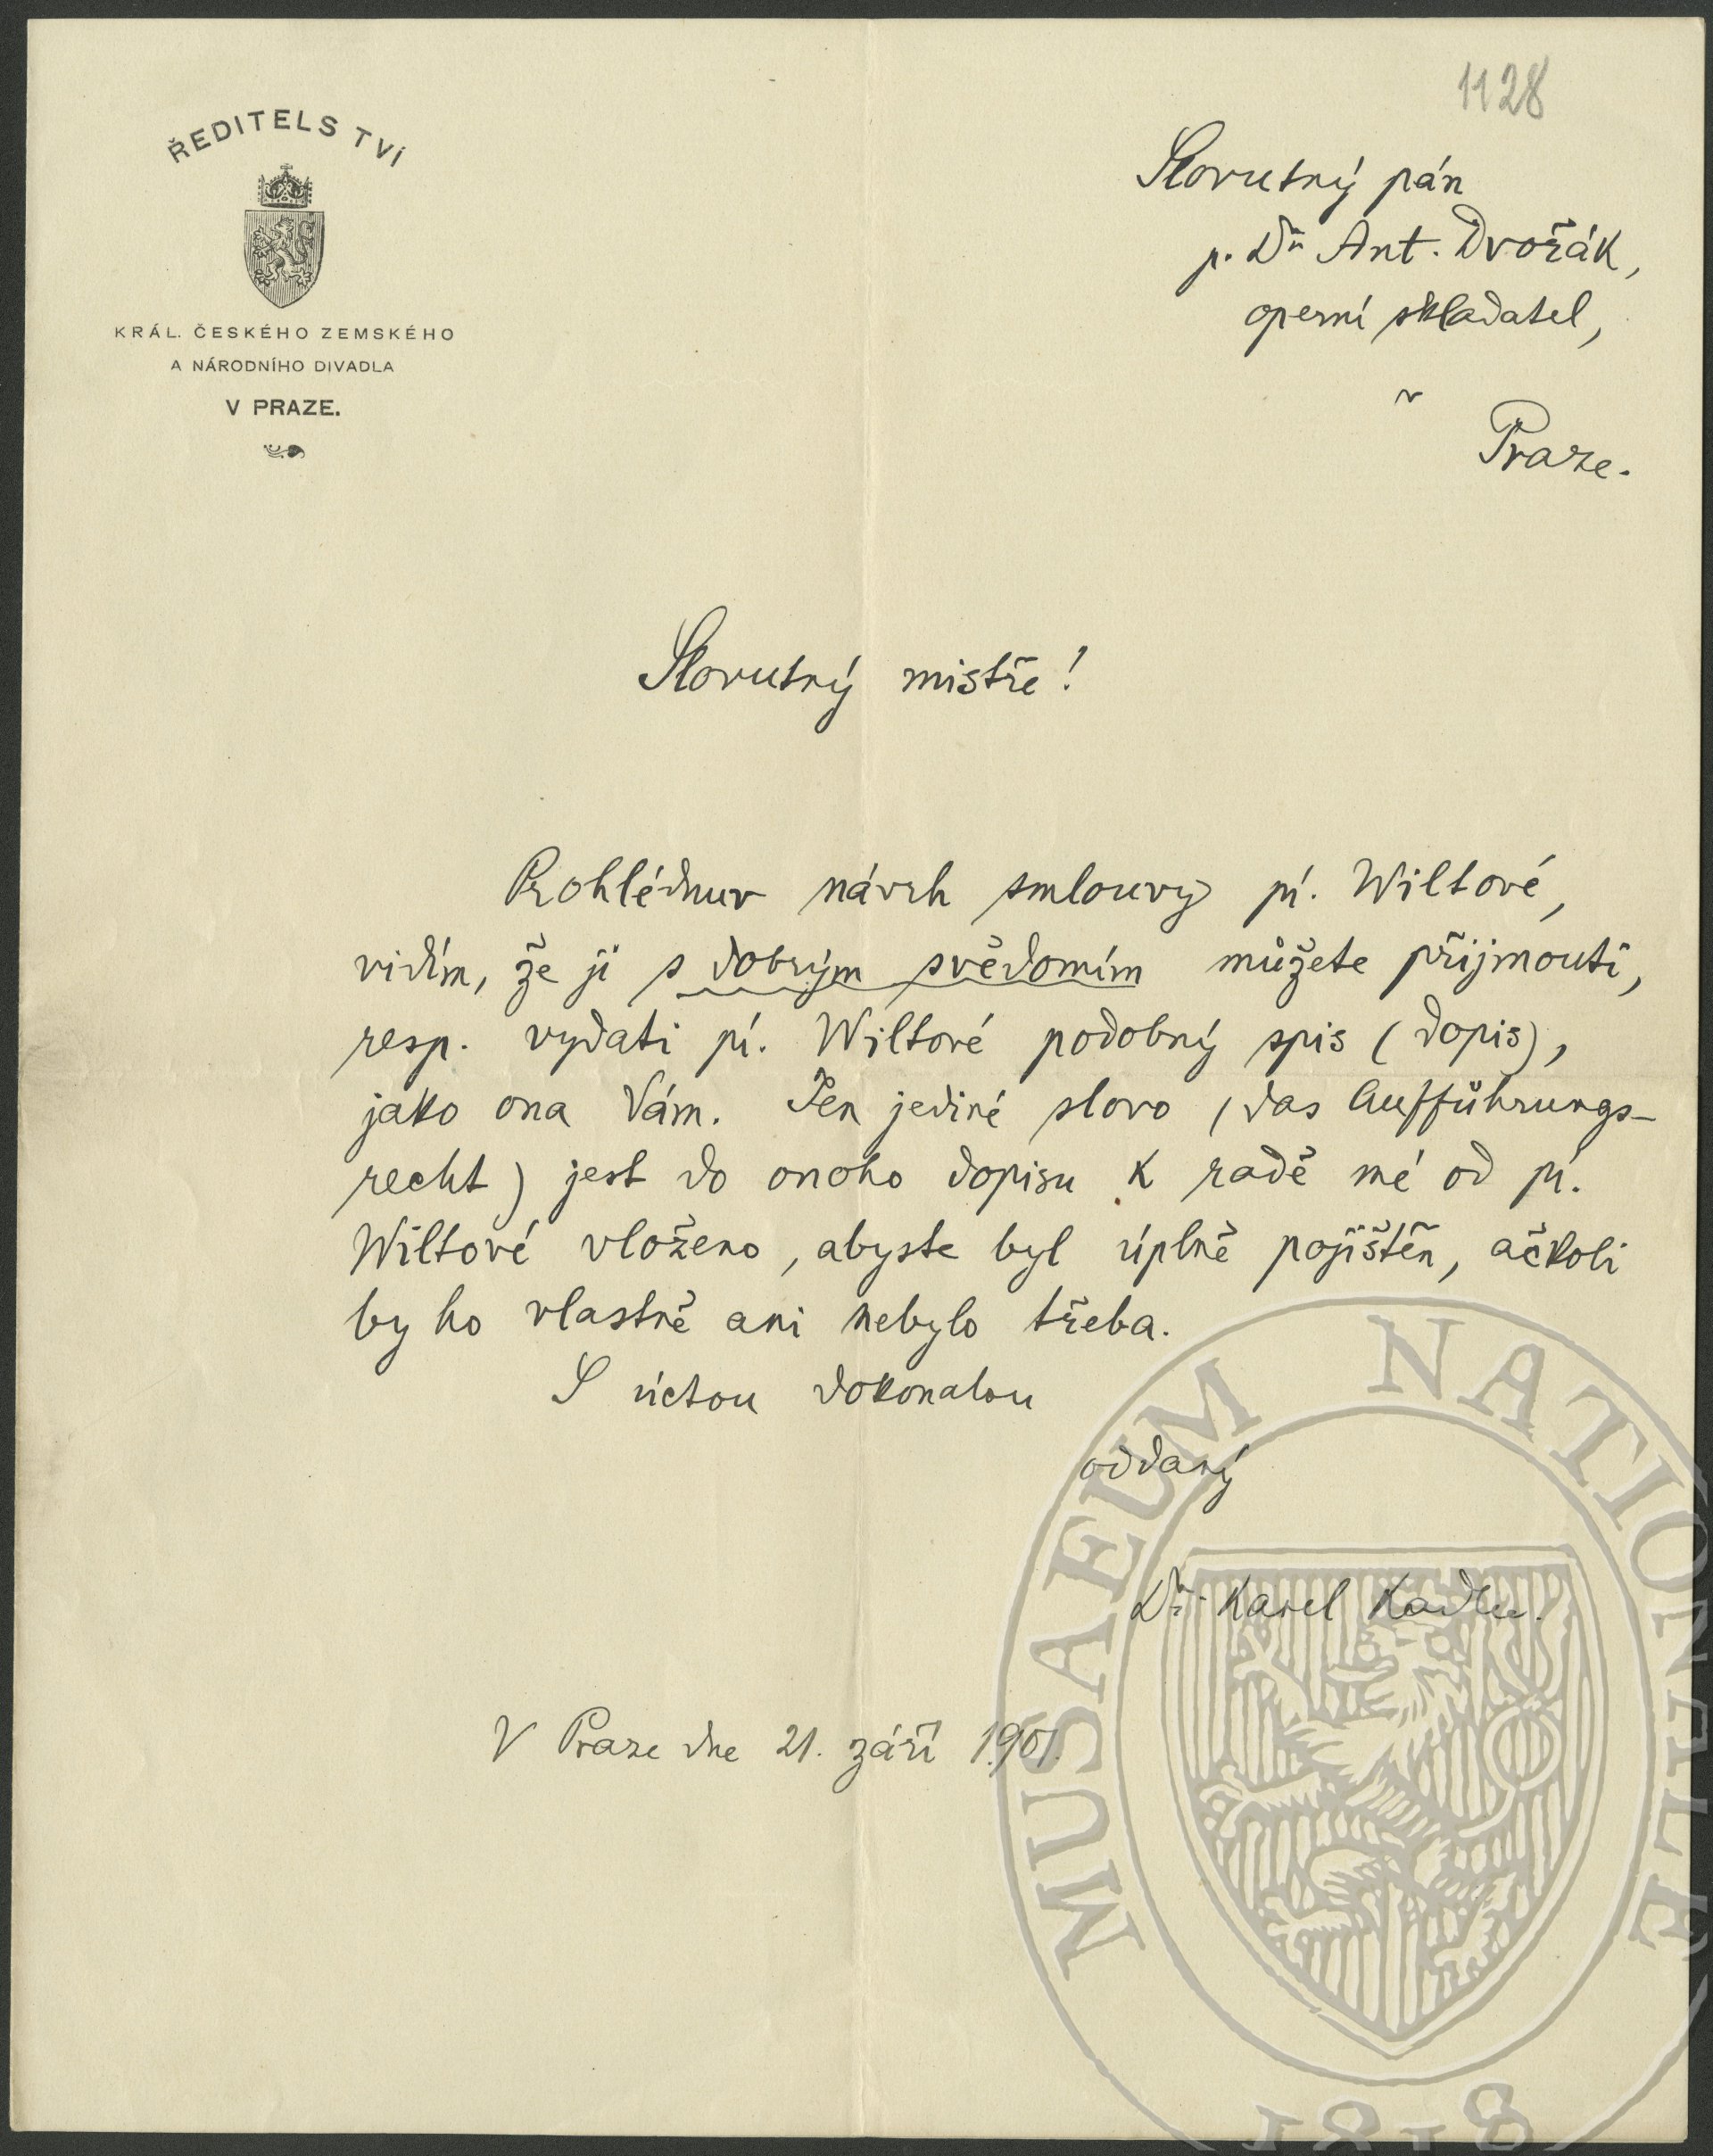 1128
ŘEDITELSTVÍ
KRÁL. ČESKÉHO ZEMSKÉHO
A NÁRODNÍHO DIVADLA
V PRAZE.
Slovutný pán
p. Dr Ant. Dvořák,
operní skladatel,
v
Praze.
Slovutný mistře!
Prohlédnuv návrh smlouvy pí. Wiltové,
vidím, že ji s dobrým svědomím můžete přijmouti,
resp. vydati pí. Wiltové podobný spis (dopis),
jako ona Vám. Jen jediné slovo (das Aufführungs-
recht) jest do onoho dopisu k radě mé od pí.
Wiltové vloženo, abyste byl úplně pojištěn, ačkoli
by ho vlastně ani nebylo třeba.
S úctou dokonalou
oddaný
Dr. Karel Kadlec.
V Praze dne 21. září 1901.
MUSAEUM NATIONALE
1818